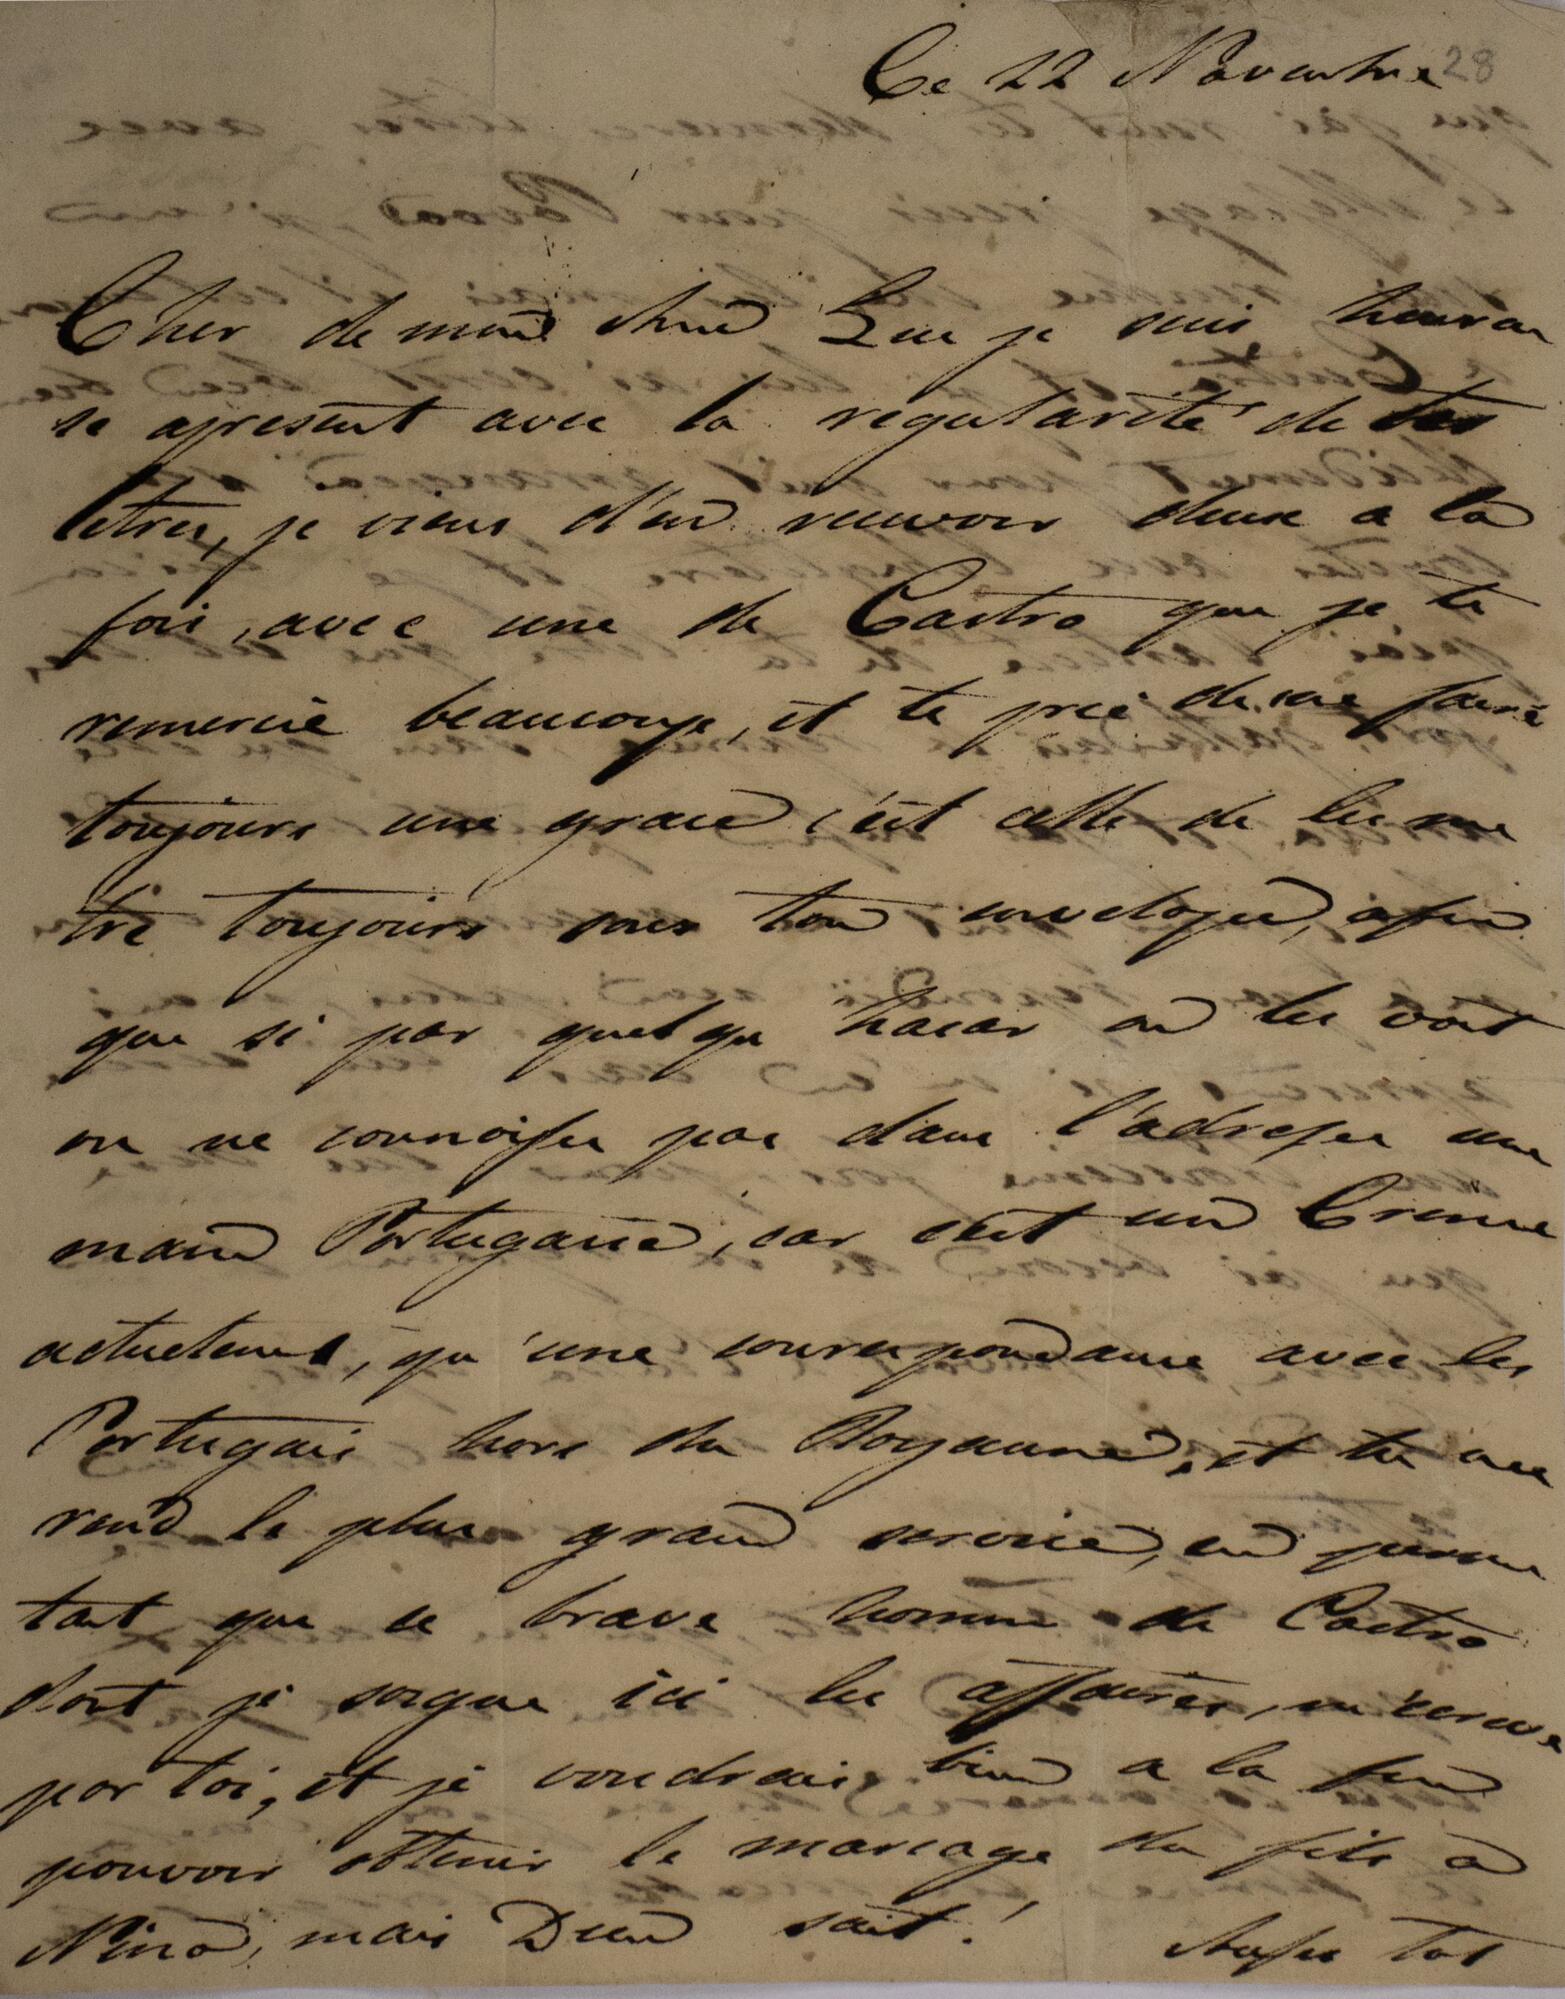 Ce 22 Novembre 28
Cher de mone chud Que je suis heureu
se apresent avec la regularité de tes
letres, je viens d'en recevoir deux a la
fois, avec une de Castro que je te
remercie beaucoup, et te prie de me faire
toujours une grace c'est celle de les me
tre toujours sous ton envelope, afin
que si par quelque hasar on les voit
on ne connoisse pas dans l'adresse une
main Portugaise, car c'est un Crime
actuelement, qu'une correspondance avec les
Portugais hors du Royaume, et tu me
rend le plus grand service, en permé
tant que ce brave homme de Castro
dont je sogne ici les affaires, m'escrive
par toi, et je voudrais bien a la fin
pouvoir obtenir le mariage du fils a
Nina, mais Dieu sait! Aussi tot